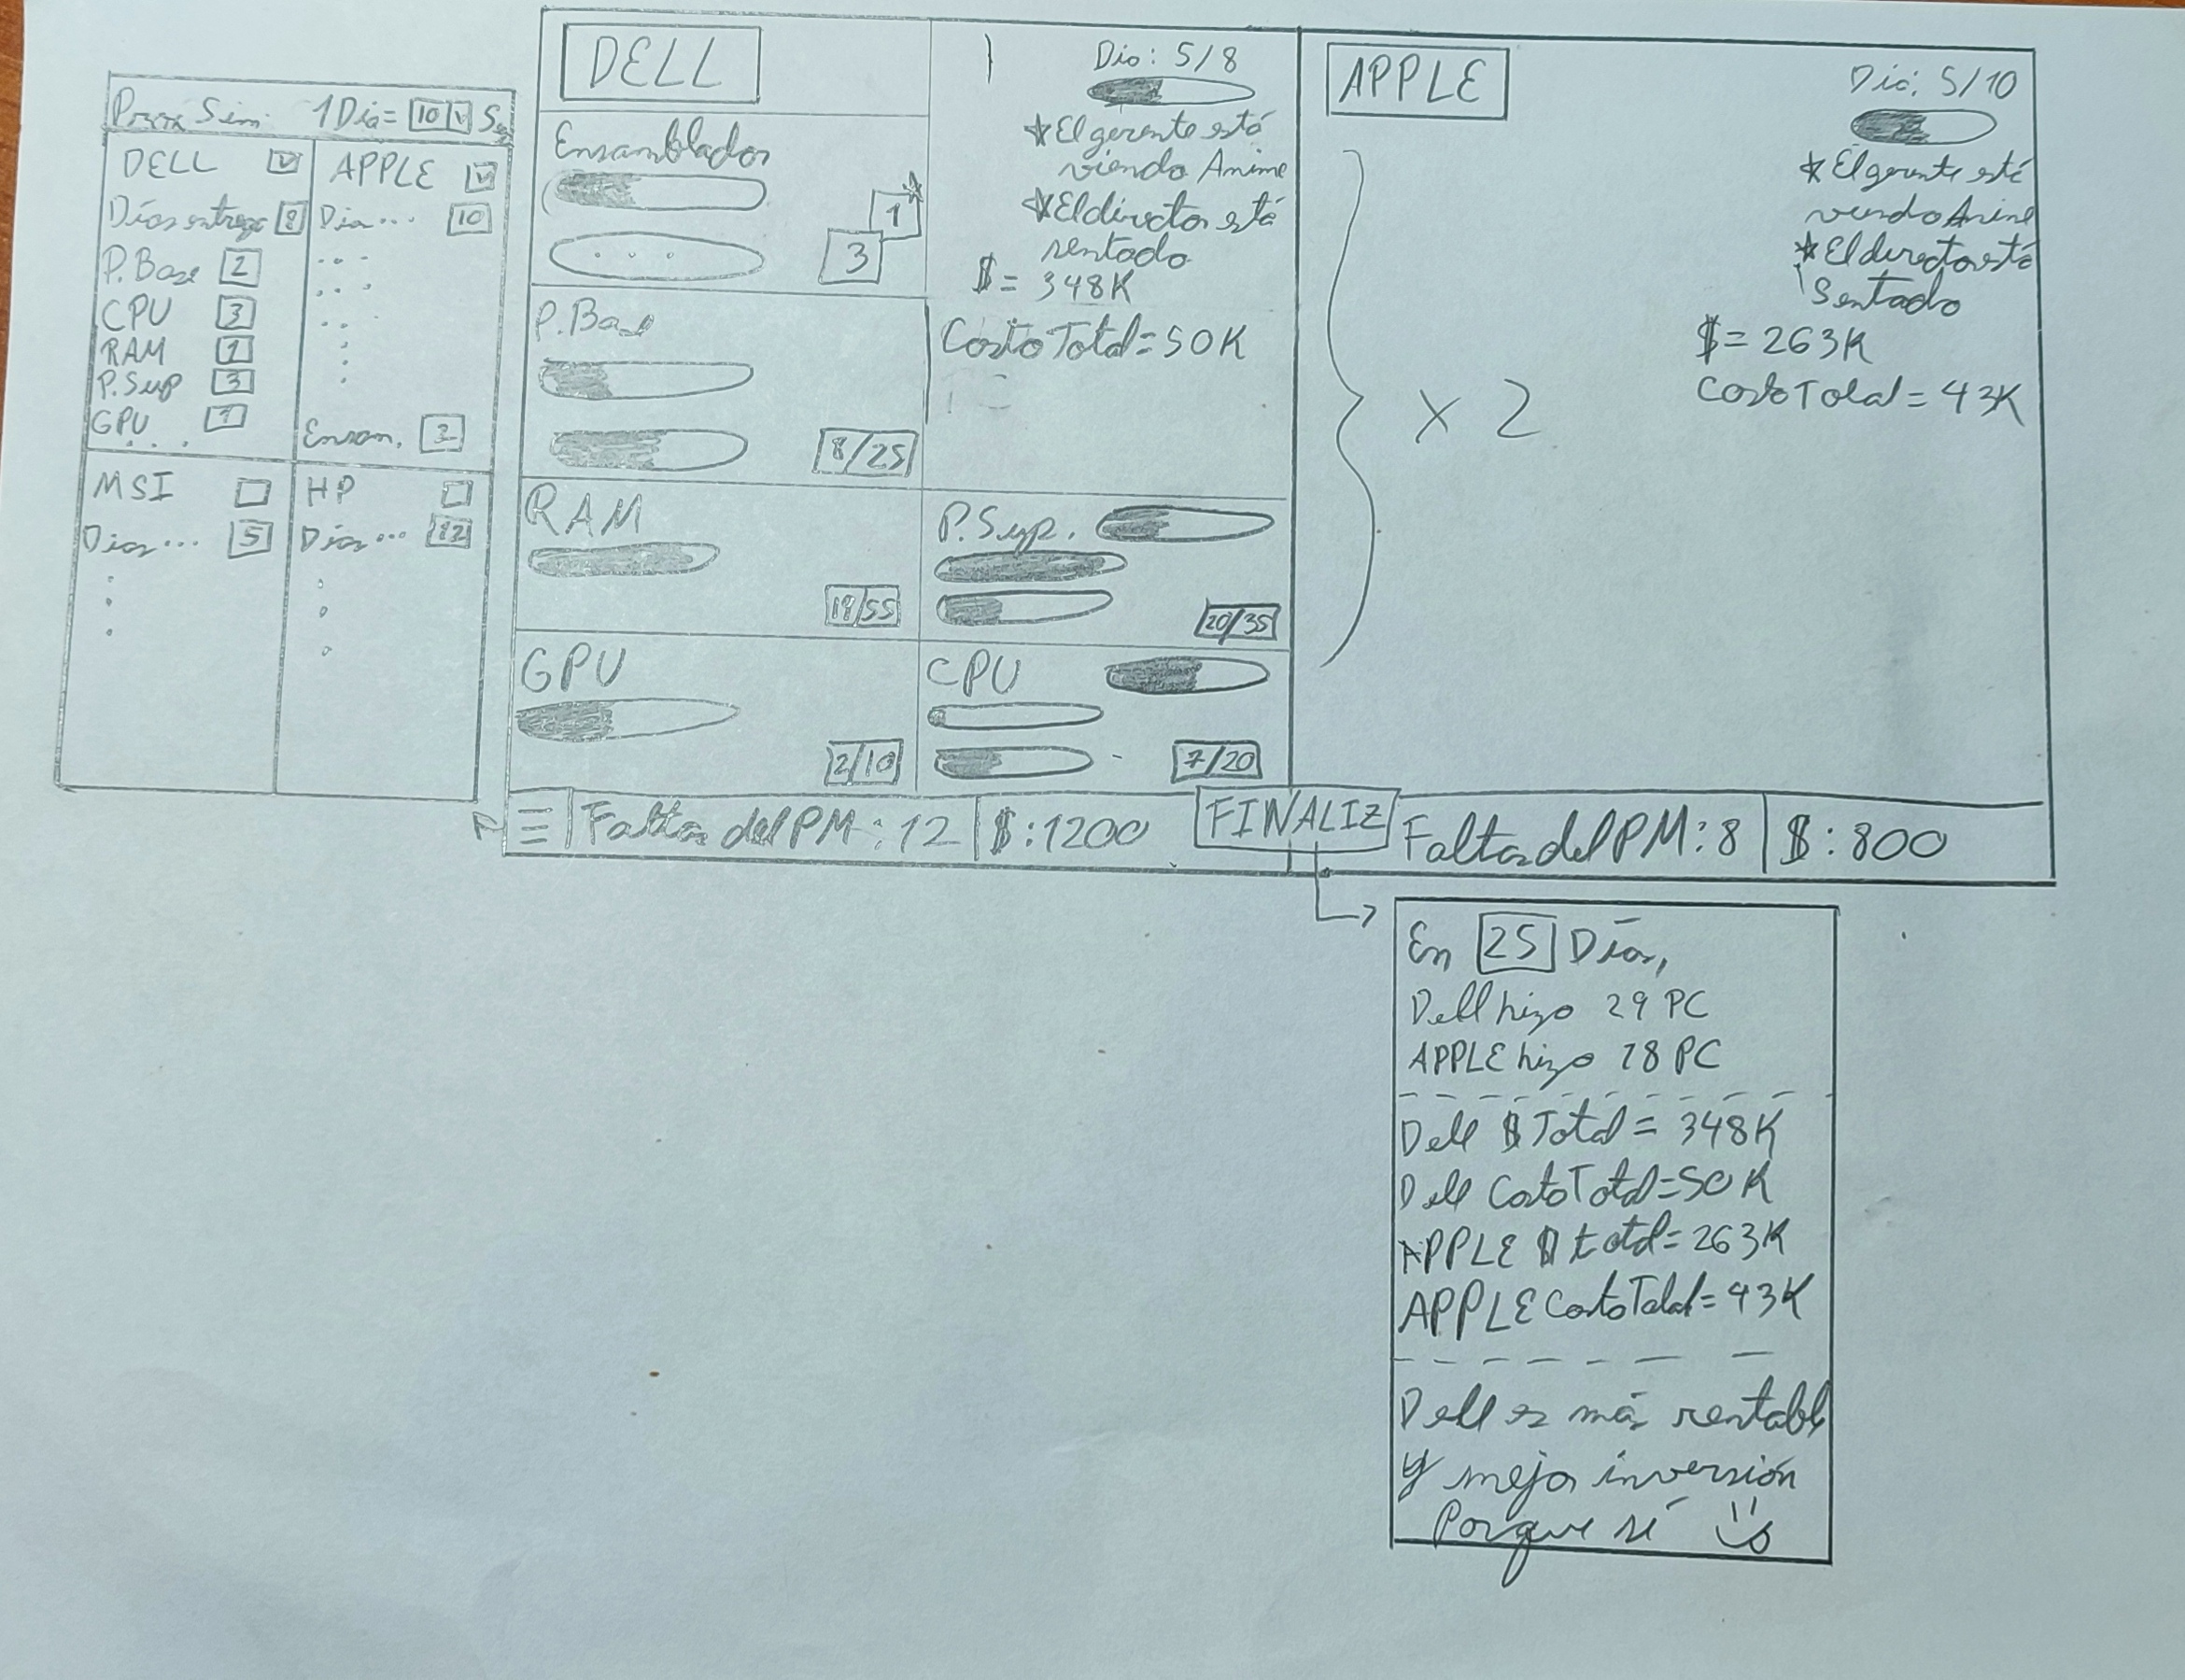 Sim. 1 Día= 10 v Se
DELL v
APPLE v
Días entrega 8
Dia... 10
P.Base 2
CPU 3
RAM 1
P.Sup 3
GPU 1
Ensam.
MSI
HP
Dias... 5
Dias... 12
DELL
Ensamblador
1*
3
P.Base
8/25
RAM
19/55
GPU
2/10
Dia: 5/8
*El gerente está
viendo Anime
*El director está
sentado
$= 348K
Costo Total=50K
P.Sup.
20/35
CPU
7/20
APPLE
x 2
Dia: 5/10
*El gerente está
viendo Anime
*El director está
Sentado
$= 263K
Costo Total= 43K
Faltas del PM: 12
$:1200
FINALIZ
Faltas del PM: 8
$:800
En 25 Días,
Dell hizo 29 PC
APPLE hizo 18 PC
Dell $ Total= 348K
Dell Costo Total=50K
APPLE $ total= 263K
APPLE Costo Total= 43K
Dell es más rentabl
y mejor inversión
Porque sí